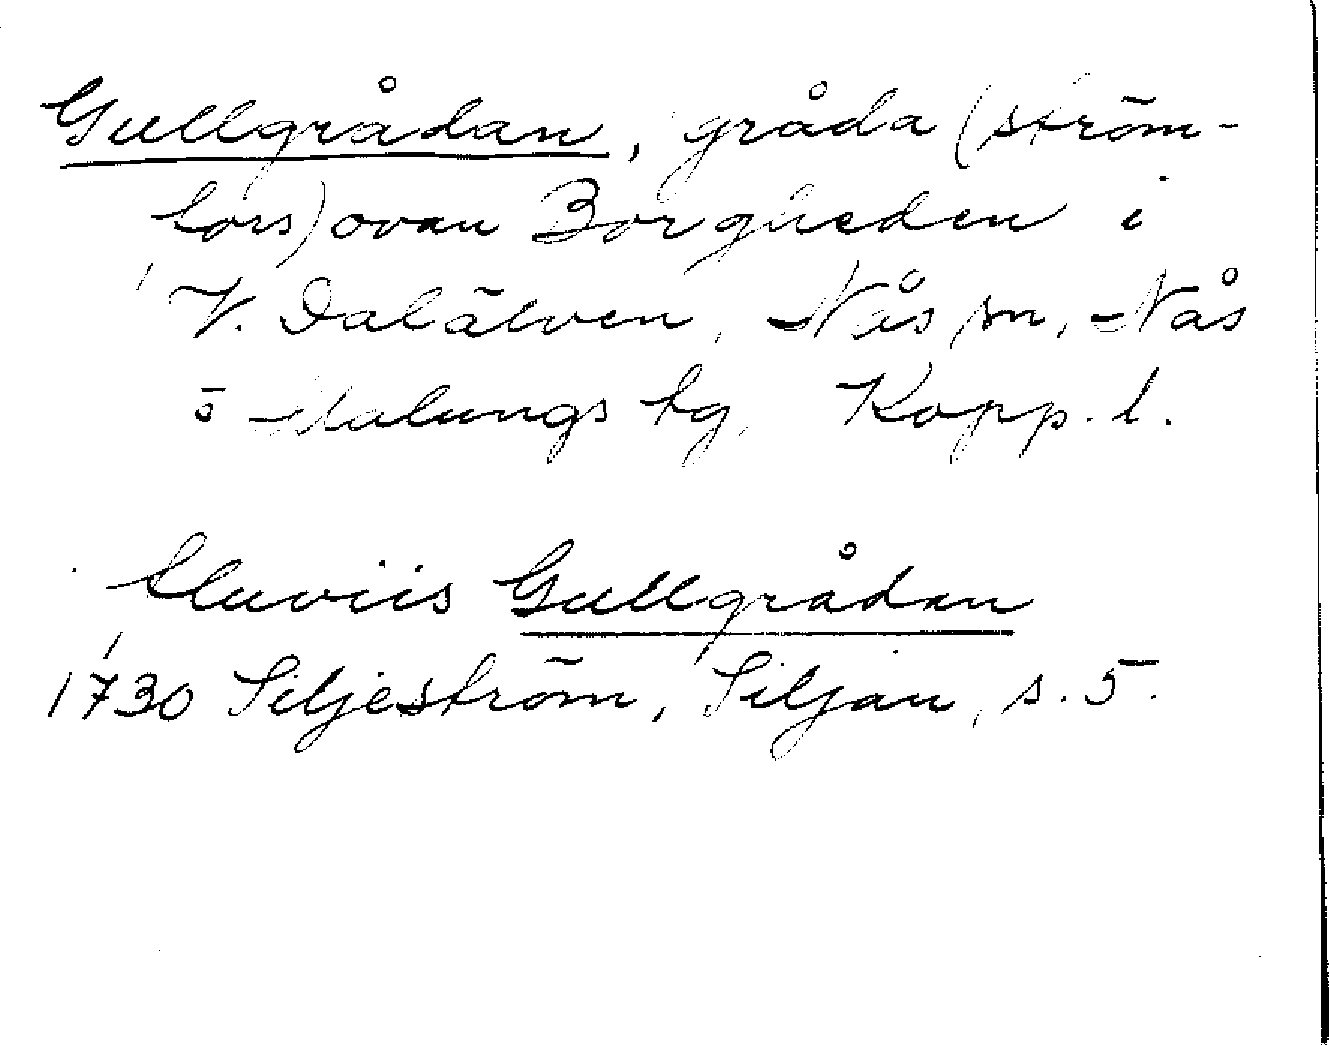 Gullgrådan, gråda (ström-
fors) ovan Borgheden i
V. Dalälven, Nås sn, Nås
o Malungs tg, Kopp. l.
fluviis Gullgrådan
1730 Siljeström, Siljan, s. 5.